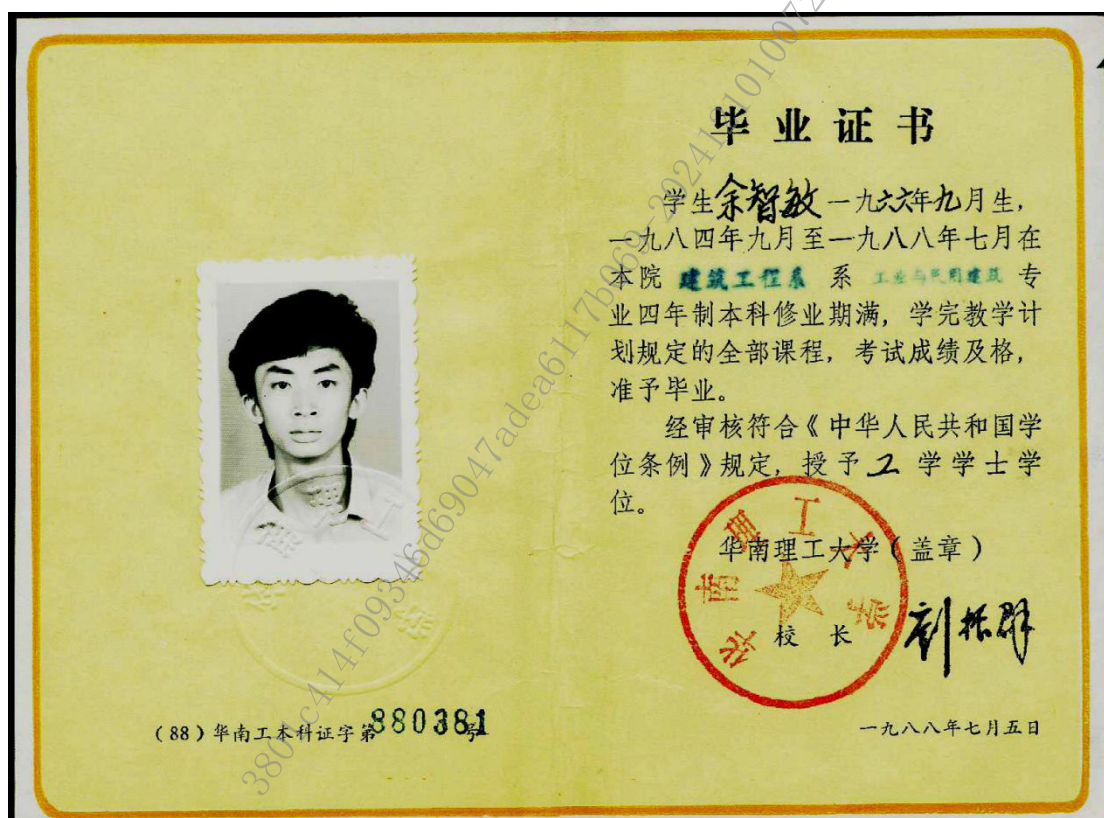 毕业证书
学生余智敏一九六六年九月生，
一九八四年九月至一九八八年七月在
本院 建筑工程系 系 工业与民用建筑 专
业四年制本科修业期满，学完教学计
划规定的全部课程，考试成绩及格，
准予毕业。
经审核符合《中华人民共和国学
位条例》规定，授予工学学士学
位。
华南理工大学（盖章）
华南理工大学
校 长 刘振群
（88）华南工本科证字第880381号
一九八八年七月五日